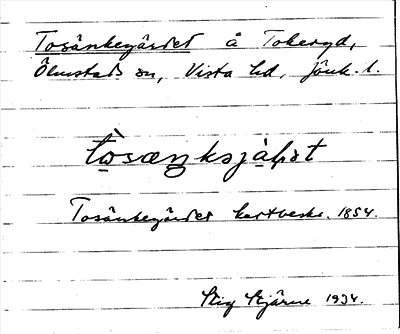 Tosänkegärdet å Tokeryd,
Ölmstads sn, Vista hd, Jönk. l.
Tosänkegärdet kartbeskr. 1854.
Stig Stjärne 1934.